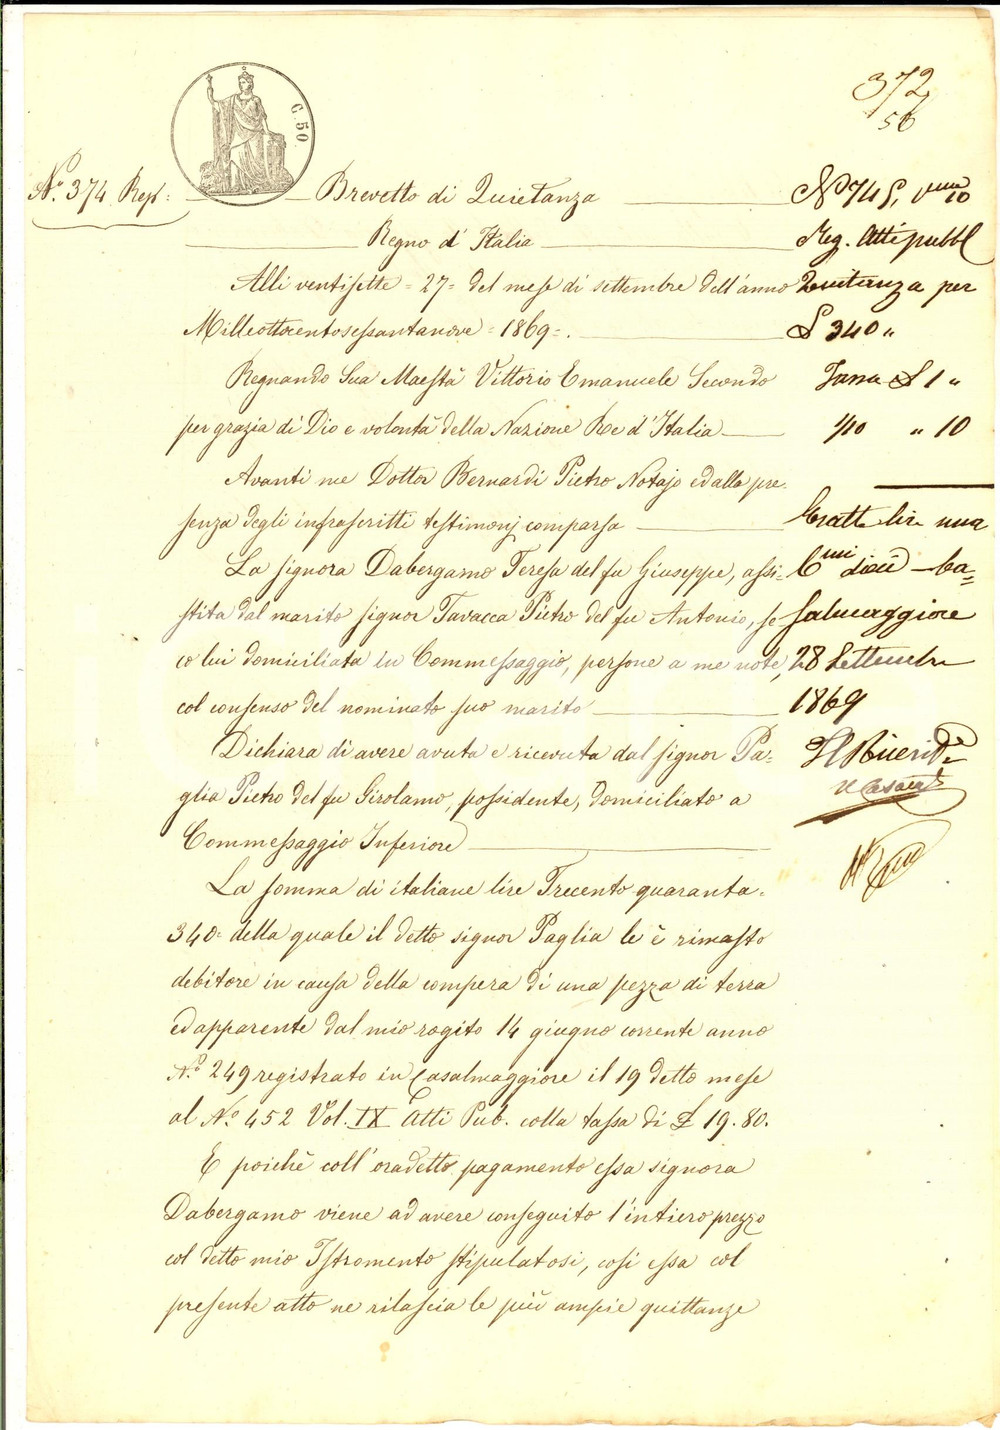 372
56
C. 50
N.° 374 Rep.
Brevetto di Quietanza
Regno d'Italia
Alli ventisette = 27 = del mese di settembre dell'anno
Milleottocentosessantanove = 1869 = .
Regnando Sua Maestà Vittorio Emanuele Secondo
per grazia di Dio e volontà della Nazione Re d'Italia
Avanti me Dottor Bernardi Pietro Notajo ed alla pre-
senza degli infrascritti testimonj comparsa
La signora Dabergamo Teresa del fu Giuseppe, assi-
stita dal marito signor Tavacca Pietro del fu Antonio, se
co lui domiciliata in Commessaggio, persone a me note,
col consenso del nominato suo marito
Dichiara di avere avuta e ricevuta dal signor Pa-
glia Pietro del fu Girolamo, possidente, domiciliato a
Commessaggio Inferiore
La somma di italiane lire Trecento quaranta =
340 = della quale il detto signor Paglia le è rimasto
debitore in causa della compera di una pezza di terra
ed apparente dal mio rogito 14 giugno corrente anno
N.° 249 registrato in Casalmaggiore il 19 detto mese
al N.° 452 Vol. IX Atti Pub. colla tassa di £ 19.80.
E poichè coll'oradetto pagamento essa signora
Dabergamo viene ad avere conseguito l'intiero prezzo
col detto mio Istromento stipulatosi, così essa col
presente atto ne rilascia le più ampie quittanze
N 748, Vme 10
Reg. Atti pubbl
Quitanza per
£ 340 "
Tassa £ 1 "
1/10 " 10
Esatte lire una
Cmi dieci Ca=
salmaggiore
28 Settembre
1869
Il Ricevid.e